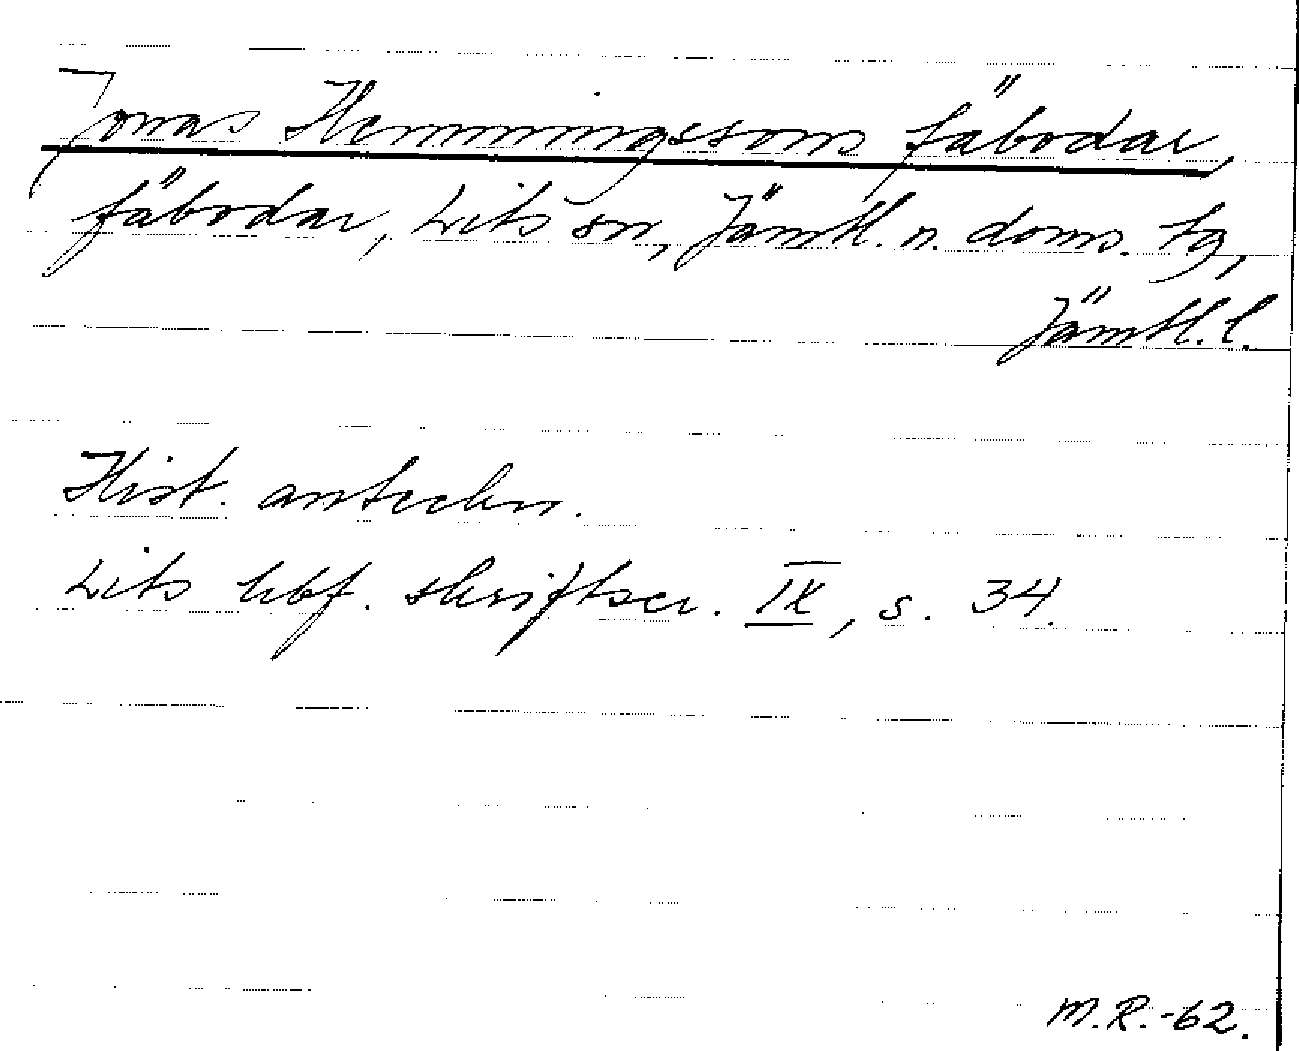 Jonas Hemmingssons fäbodar,
fäbodar, Lits sn, Jämtl. n. doms. tg,
Jämtl. l.
Hist. anteckn.
Lits hbf. skriftser. IX, s. 34.
M.R.-62.